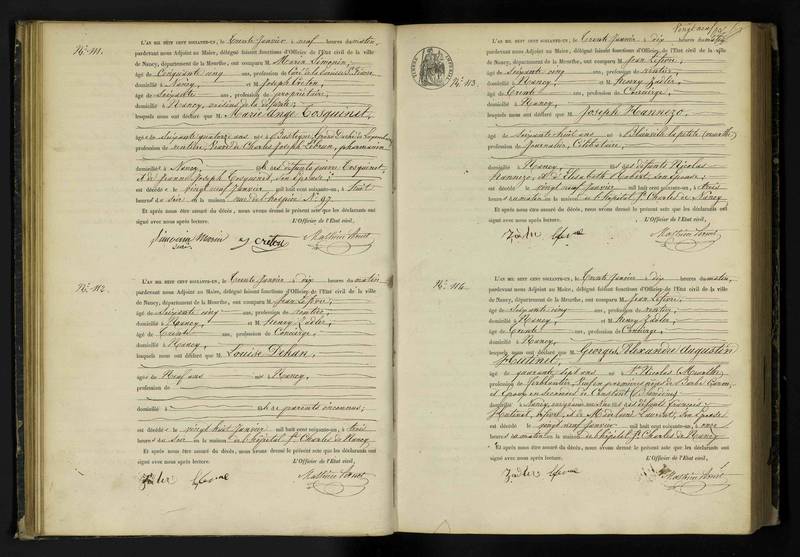 N°. 111.
L'AN MIL HUIT CENT SOIXANTE-UN, le Trente Janvier à neuf heures du matin,
pardevant nous Adjoint au Maire, délégué faisant fonctions d'Officier de l'Etat civil de la ville
de Nancy, département de la Meurthe, ont comparu M. Morin Simonin,
âgé de Cinquante cinq ans, profession de
domicilié à Nancy, et M. Joseph Criton,
âgé de Soixante ans, profession de propriétaire,
domicilié à Nancy, voisins de la défunte;
lesquels nous ont déclaré que M. Marie Ange Cosquinet,
âgée de Soixante quatorze ans née à Bastogne, Grand Duché de Luxembourg
profession de rentière, Veuve de Charles Joseph Lebrun, pharmacien
domiciliée à Nancy, et ces défunts pierre Cosquinet,
et de Jeanne Joseph Cosquinet, son épouse;
est décédée le vingt neuf Janvier mil huit cent soixante-un, à huit
heures du soir de la maison rue N°. 97
Et après nous être assuré du décès, nous avons dressé le présent acte que les déclarants ont
signé avec nous après lecture. L'Officier de l'Etat civil,
Simonin Morin J. Criton Mathieu
N°. 112.
L'AN MIL HUIT CENT SOIXANTE-UN, le Trente Janvier à dix heures du matin
pardevant nous Adjoint au Maire, délégué faisant fonctions d'Officier de l'Etat civil de la ville
de Nancy, département de la Meurthe, ont comparu M. Jean Lefèvre;
âgé de Soixante cinq ans, profession de rentier,
domicilié à Nancy, et M. Henry Zidler,
âgé de Trente ans, profession de Concierge,
domicilié à Nancy,
lesquels nous ont déclaré que M. Louise Dehan,
âgée de Neuf ans née Nancy,
profession de
domicilié à et de parents inconnus;
est décédée le vingt huit Janvier mil huit cent soixante-un, à trois
heures du soir en la maison de l'hôpital St. Charles de Nancy
Et après nous être assuré du décès, nous avons dressé le présent acte que les déclarants ont
signé avec nous après lecture. L'Officier de l'Etat civil,
Zidler Lefèvre Mathieu
Vingt neuf
N°. 113.
L'AN MIL HUIT CENT SOIXANTE-UN, le Trente Janvier à dix heures du matin
pardevant nous Adjoint au Maire, délégué faisant fonctions d'Officier de l'Etat civil de la ville
de Nancy, département de la Meurthe, ont comparu M. Jean Lefèvre,
âgé de Soixante cinq ans, profession de rentier
domicilié à Nancy, et M. Henry Zidler,
âgé de Trente ans, profession de Concierge,
domicilié à Nancy,
lesquels nous ont déclaré que M. Joseph Hannezo,
âgé de Soixante huit ans né à Blainville la petite (meurthe)
profession de Journalier, Célibataire,
domicilié à Nancy et ces défunts Nicolas
Hannezo, et d'Elisabeth Hubert, son épouse;
est décédé le vingt neuf Janvier mil huit cent soixante-un, à trois
heures du matin en la maison de l'hôpital St. Charles de Nancy
Et après nous être assuré du décès, nous avons dressé le présent acte que les déclarants ont
signé avec nous après lecture. L'Officier de l'Etat civil,
Zidler Lefèvre Mathieu
N°. 114.
L'AN MIL HUIT CENT SOIXANTE-UN, le Trente Janvier à dix heures du matin,
pardevant nous Adjoint au Maire, délégué faisant fonctions d'Officier de l'Etat civil de la ville
de Nancy, département de la Meurthe, ont comparu M. Jean Lefèvre,
âgé de Soixante cinq ans, profession de rentier,
domicilié à Nancy, et M. Henry Zidler,
âgé de Trente ans, profession de Concierge,
domicilié à Nancy,
lesquels nous ont déclaré que M. Georges Alexandre Augustin
Hutinet,
âgé de quarante sept ans né St. Nicolas (Meurthe)
profession de ferblantier, Veuf en premières noces de Barbe
et Epoux en secondes de Constant
domicilié à Nancy, ces défunts François
Hutinet, et de Madelaine Laurent, son épouse
est décédé le vingt neuf Janvier mil huit cent soixante-un, à onze
heures du matin en la maison de l'hôpital St. Charles de Nancy
Et après nous être assuré du décès, nous avons dressé le présent acte que les déclarants ont
signé avec nous après lecture. L'Officier de l'Etat civil,
Zidler Lefèvre Mathieu